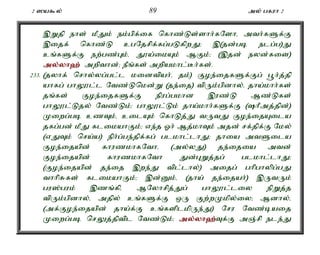 2 ஸயகூல் 89 அல் பகரா 2
இறுதி நாள் மீதும் நம்பிக்கை கொண்டுள்ளார்களோ, அவர்களுக்கு
இதைக் கொண்டு உபதேசிக்கப்படுகிறது; இ(தன்படி நடப்ப)து
உங்களுக்கு நற்பண்பும், தூய்மையும் ஆகும்; (இதன் நலன்களை)
அல்லாஹ் அறிவான்; நீங்கள் அறியமாட்டீர்கள்.
233. (தலாக் சொல்லப்பட்ட மனைவியர், தம்) குழந்தைகளுக்குப் பூர்த்தி
யாகப் பாலூட்ட வேண்டுமென்று (தந்தை) விரும்பினால், தாய்மார்கள்
தங்கள் குழந்தைகளுக்கு நிரப்பமான இரண்டு ஆண்டுகள்
பாலூட்டுதல் வேண்டும்; பாலூட்டும் தாய்மார்களுக்கு (ஷரீஅத்தின்)
முறைப்படி உணவும், உடையும் கொடுத்து வருவது குழந்தையுடைய
தகப்பன் மீது கடமையாகும்; எந்த ஓர் ஆத்மாவும் அதன் சக்திக்கு மேல்
(எதுவும் செய்ய) நிர்ப்பந்திக்கப் படமாட்டாது; தாயை அவளுடைய
குழந்தையின் காரணமாகவோ, (அல்லது) தந்தையை அவன்
குழந்தையின் காரணமாகவோ துன்புறுத்தப் படமாட்டாது;
(குழந்தையின் தந்தை இறந்து விட்டால்) அதைப் பரிபாலிப்பது
வாரிசுகள் கடமையாகும்; இன்னும், (தாய் தந்தையர்) இருவரும்
பரஸ்பரம் இணங்கி, ஆலோசித்துப் பாலூட்டலை நிறுத்த
விரும்பினால், அதில் உங்களுக்கு ஒரு குற்றமில்லை; ஆனால்,
(அக்குழந்தையின் தாய்க்கு உங்களிடமிருந்து) சேர வேண்டியதை
முறைப்படி செலுத்திவிட வேண்டும்; அல்லாஹ்வுக்கு அஞ்சி நடந்து